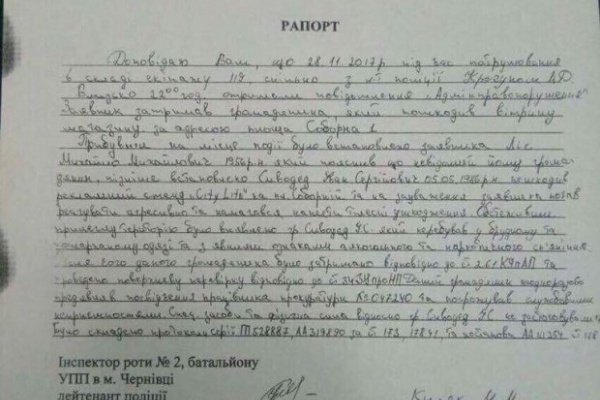 РАПОРТ
Доповідаю Вам, що 28.11.2017р. під час патрулювання
в складі екіпажу 119 спільно з поліції
близько 22⁰⁰ год. отримали повідомлення "Адмінправопорушення"
Заявник затримав громадянина, який пошкодив вітрину
магазину за адресою площа Соборна
Прибувши на місце події було встановлено заявника Ліс
Михайло Михайлович 1956р.н який пояснив що невідомий йому грома-
дянин, пізніше встановлено Сиводєд Сергійович 05.05.1986р.н. пошкодив
рекламний стенд "City Life" на пл. Соборній та на зауваження заявника почав
реагувати агресивно та намагався нанести тілесні ушкодження.
територію було виявлено гр Сиводєд який перебував у брудному та
одязі та з явними ознаками алкогольного та наркотичного сп'яніння
чого даного громадянина було затримано відповідно до ст 261 КУпАП та
проведено поверхневу перевірку відповідно до ст 34 ЗУпроНП Даний громадянин неодноразово
пред'являв посвідчення працівника прокуратури та погрожував службовими
неприємностями. Спец. засоби та фізична сила відносно гр Сиводєд не застосовувались
було складено протокол серії АА319890 за ст 173, 178ч1, та
Інспектор роти № 2, батальйону
УПП в м. Чернівці
лейтенант поліції